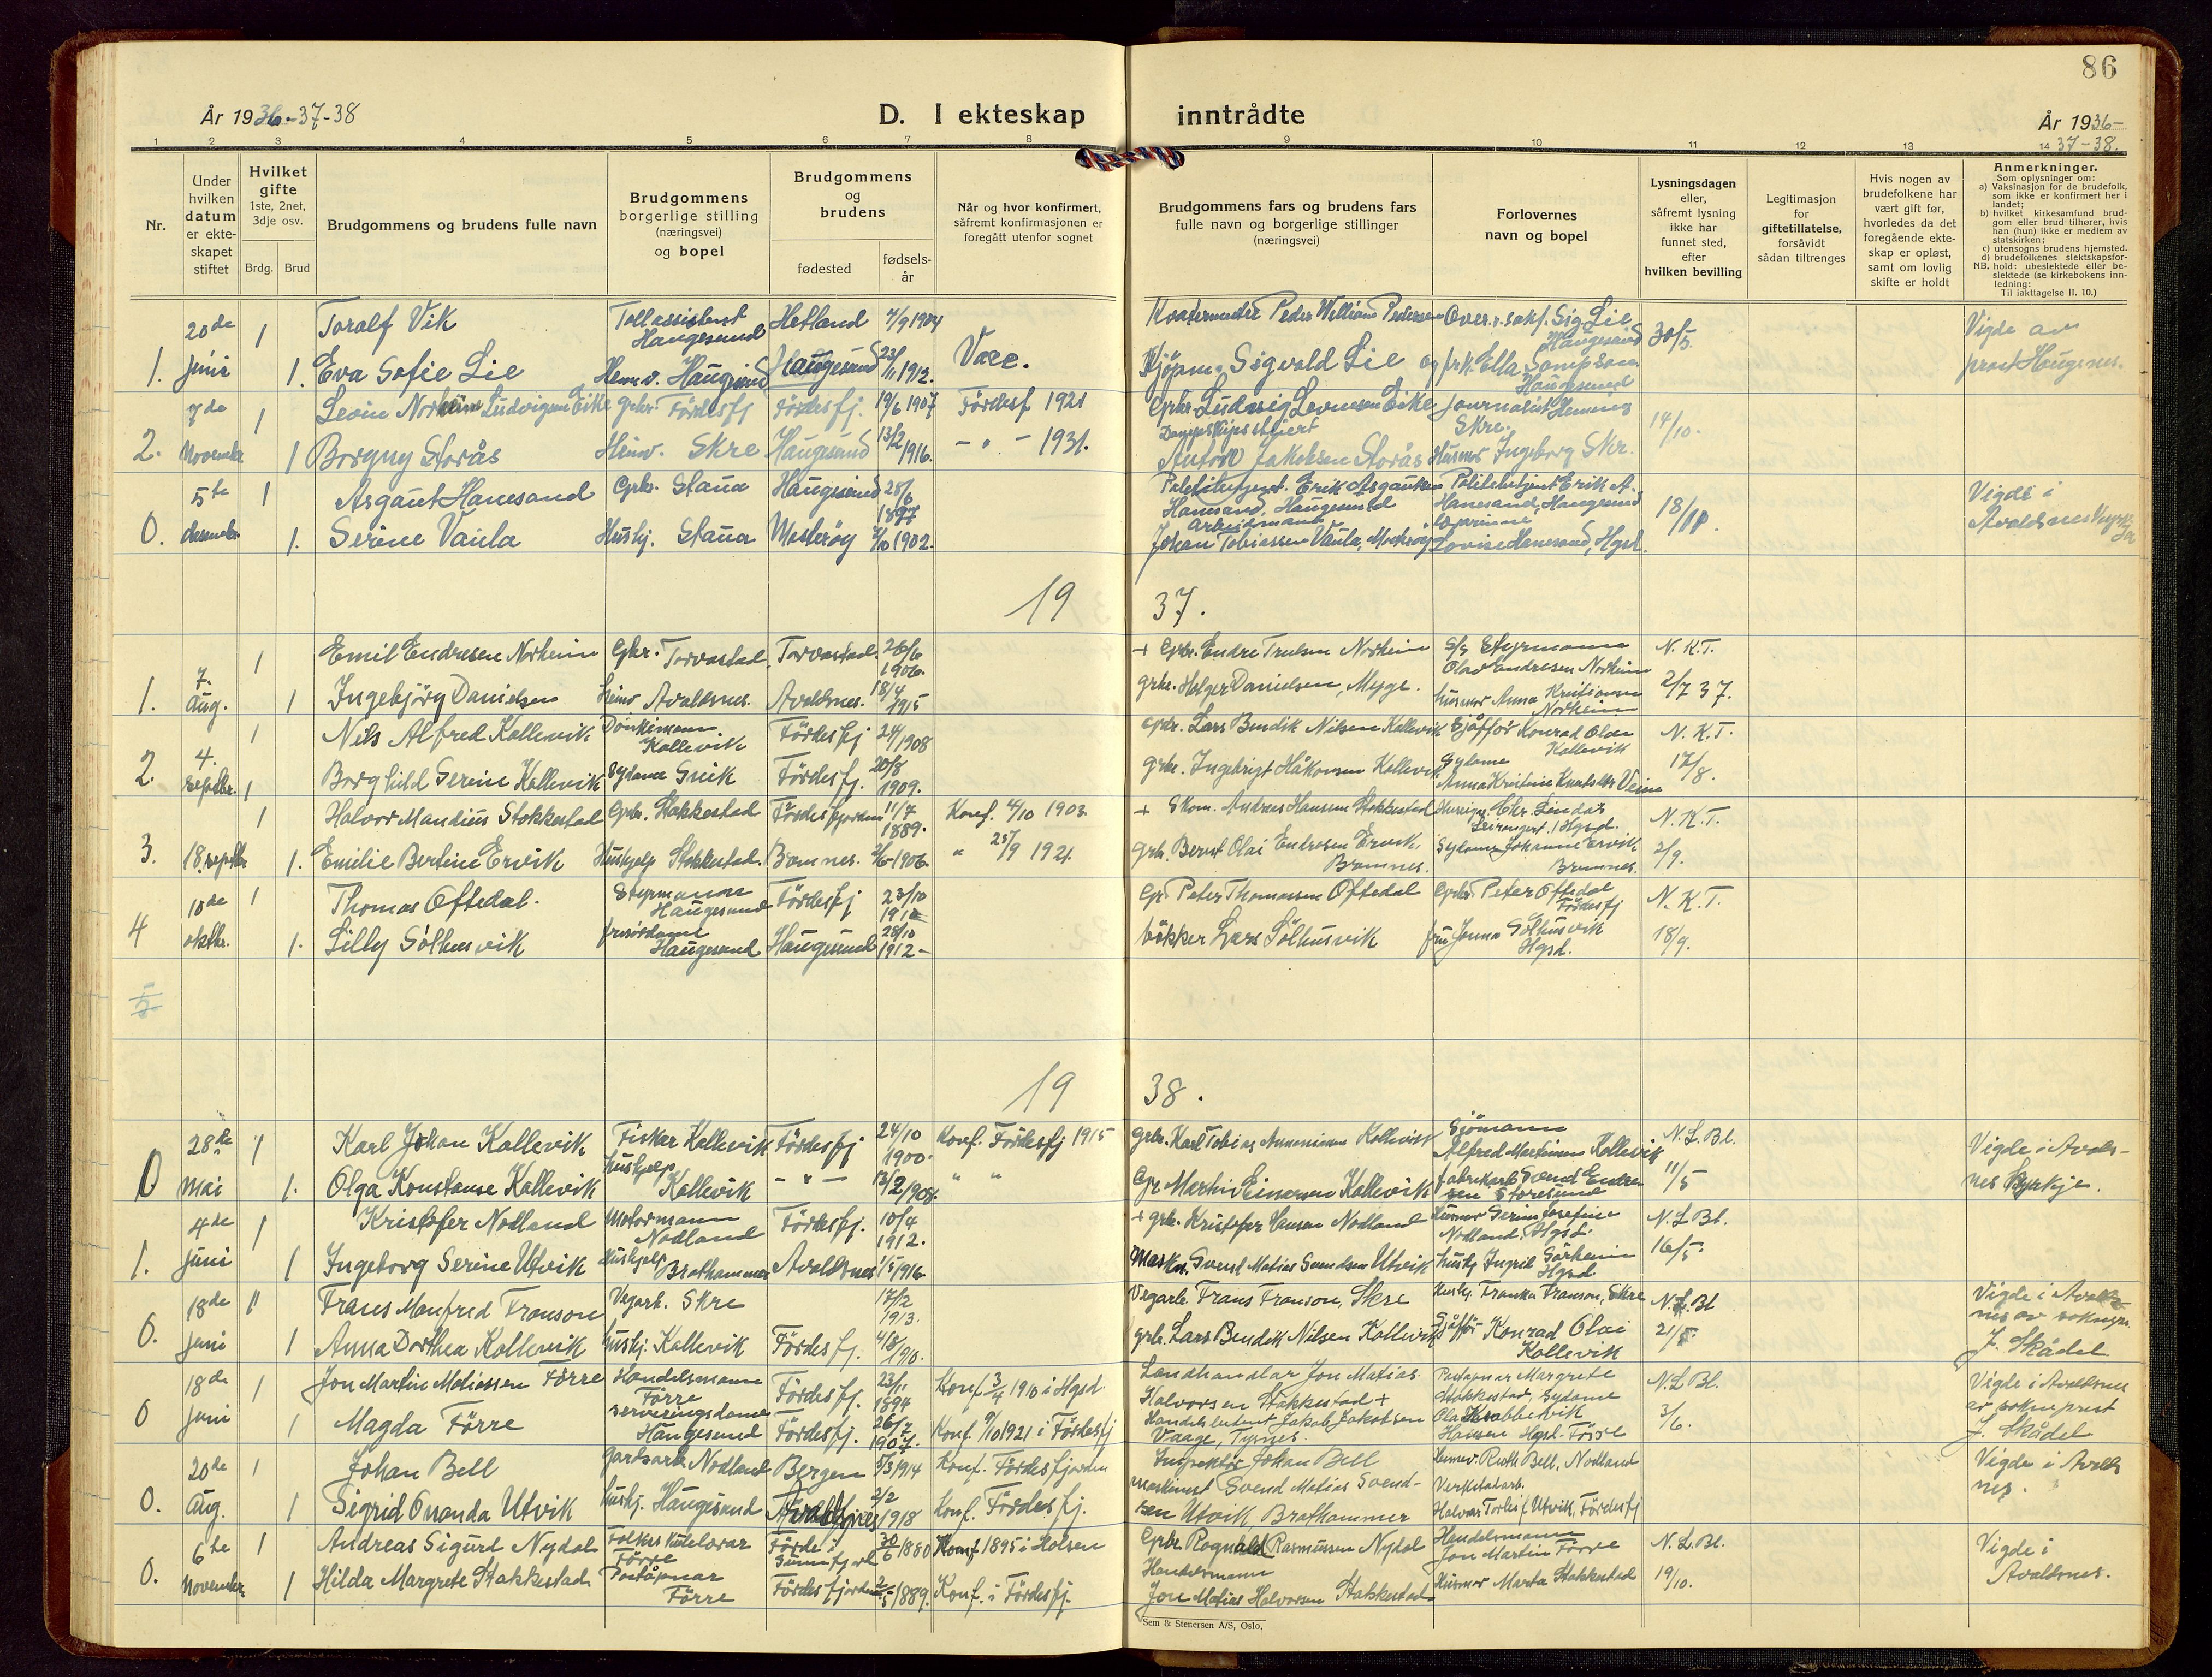 86
År 1936-37-38
D. I ekteskap inntrådte
År 1936-
37-38.
1 2 3 4 5 6 7 8 9 10 11 12 13 14
Nr.
Under hvilken datum er ekteskapet stiftet
Hvilket gifte 1ste, 2net, 3dje osv.
Brdg. Brud
Brudgommens og brudens fulle navn
Brudgommens borgerlige stilling (næringsvei) og bopel
Brudgommens og brudens
fødested
fødselsår
Når og hvor konfirmert, såfremt konfirmasjonen er foregått utenfor sognet
Brudgommens fars og brudens fars fulle navn og borgerlige stillinger (næringsvei)
Forlovernes navn og bopel
Lysningsdagen eller, såfremt lysning ikke har funnet sted, efter hvilken bevilling
Legitimasjon for giftetillatelse, forsåvidt sådan tiltrenges
Hvis nogen av brudefolkene har vært gift før, hvorledes da det foregående ekteskap er opløst, samt om lovlig skifte er holdt
Anmerkninger.
Som oplysninger om:
a) Vaksinasjon for de brudefolk, som ikke er konfirmert her i landet;
b) hvilket kirkesamfund brudgom eller brud tilhører, hvis han (hun) ikke er medlem av statskirken;
c) utensogns brudens hjemsted.
d) brudefolkenes slektskapsforhold: ubeslektede eller beslektede (se kirkebokens innledning:
NB.
Til iakttagelse II. 10.)
20de 1 Toralf Vik Tollassistent Haugesund Hetland 4/9 1904 Kvatermester Peder William Pedersen Over.r.sakf. Sig. Lie Haugesund 30/5. Vigde av
1. juni 1. Eva Sofie Lie Hemv. Haugesund Haugesund 23/11 1912. Vare. Kjøpm. Sigvald Lie og frk. Ella Sompson Haugesund prost Haugsnes.
7de 1 Leoin Norheim Ludvigsen Eike Grbr. Førdesfj Førdesfj. 19/6 1907 Førdesf 1921 Grbr. Ludvig Leonsen Eike Journalist Henning Skre. 14/10.
2. November 1 Borgny Storås Heimv. Skre Haugesund 13/2 1916. - " - 1931. Anton Jakobsen Storås Husmor Ingeborg Skr.
5te 1 Asgaut Hanesand Grbr. Staua Haugesund 28/6 1897 Politibetjent. Erik Asgautsen Hanesand, Haugesund Politibetjent Erik A. Hanesand, Haugesund 18/11. Vigde i
0. desember 1. Serine Vaula Hushj. Staua Mosterøy 4/10 1902. Arbeidsmann Johan Tobiassen Vaula, Mosterøy Lovise Hanesand, Hgsd. Avaldsnes
1937.
1 Emil Endresen Norheim Gbr. Torvastad. Torvastad. 26/6 1906. + Gbr. Endre Trulsen Norheim S/s Styrmann Olav Endresen Norheim N. K. T.
1. 7. Aug. 1 Ingebjörg Danielsen heimv Avaldsnes. Avaldsnes. 18/4 1915 grbr. Holger Danielsen, Mygge. husmor Anna Kristiansen Norheim 2/7 37.
1 Nils Alfred Kallevik Donkimann Kallevik Førdesfj 24/1 1908 Gbr. Lars Bendik Nilsen Kallevik Sjåffør Konrad Olai Kallevik N. K. T.
2. 4. septbr. 1 Borghild Serine Kallevik Sydame Gnik Førdesfj. 20/8 1909. grbr. Ingebrigt Håkonsen Kallevik Sydame Anna Kristine 17/8.
1 Halvor Mandius Stokkestad Grbr. Stakkestad Førdesfjorden 11/7 1889. Konf. 4/10 1903. + Skom. Andreas Hansen Stokkestad N. K. T.
3. 18. septbr 1. Emilie Bertine Ervik Hushjelp Stokkestad. Bømnes. 2/6 1906. " 25/9 1921. Grb. Bernt Olai Endresen Ervik, Bremnes. Sydame Johanne Ervik Bremnes. 2/9.
10de 1 Thomas Oftedal. Styrmann Haugesund Førdesfj 23/10 1910 Gr. Peter Thomassen Oftedal Grbr. Peter Oftedal Førdesfj N. K. T.
4 oktbr. 1. Lilly Sölhusvik frisördame Haugesund Haugesund 28/10 1912- bökker Lars Sölhusvik fru Jenna Sölhusvik Hgsd. 18/9.
5/2
1938.
28de 1 Karl Johan Kallevik Fiskar Kallevik Førdesfj 24/10 1900. Konf. Førdesfj 1915 grbr. Karl Tobias Kallevik Sjömann Alfred Martinius Kallevik N. L. Bl. Vigde i Avalds-
0 mai 1. Olga Konstanse Kallevik hushjelp Kallevik - " - 13/2 1908. " " Gr. Martin Einarsen Kallevik fabrikarb. Svend Endresen Storesund 11/5 nes Kyrkje.
4de 1 Kristofer Nodland Motormann Nodland Førdesfj. 10/4 1912. + grb. Kristofer Hansen Nodland Husmor Serine Josefine Nodland, Hgsd. N. L Bl.
1. juni 1 Ingeborg Serine Utvik hushjelp Brathammer Avaldsnes 1/5 1916 Maskn. Svend Matias Svendsen Utvik hushj Ingrid Sörheim Hgsd 16/5.
18de 1 Frans Manfred Franson Vegarb. Skre 17/2 1913. Vegarb. Frans Franson, Skre Hushj. Franka Franson, Skre N.L.Bl Vigde i Avalds-
0. juni 1 Anna Dorthea Kallevik hushj. Kallevik Førdesfj. 4/8 1910. grb. Lars Bendik Nilsen Kallevik Sjåffør Konrad Olai Kallevik 21/5. nes av sokngpr. J. Skådel
18de 1 Jon Martin Matiassen Førre Handelsmann Førre Førdesfj. 23/11 1894 Konf. 3/4 1910 i Hgsd. Landhandlar Jon Matias Halvorsen Stakkestad + Postopnar Margrete Stakkestad, sydame N.L Bl. Vigde i Avaldsnes
0 juni 1 Magda Førre serveringsdame Haugesund Førdesfj. 26/7 1907. Konf. 9/10 1921 i Førdesfj Jakob Jakobsen Vaage, Tysnes. 3/6. av sokneprest J. Skådel
20de 1 Johan Bell Gardsarb. Nodland Bergen 5/3 1914 Konf. Førdesfjorden Inspektör Johan Bell Heimev. Ruth Bell, Nodland Vigde i Avalds
0. Aug. 1 Sigrid Onanda Utvik hushj. Haugesund Avaldsnes 2/2 1918 Konf. Førdesfj. maskinist Svend Matias Svendsen Utvik Brathammer Verkstadarb. Halvar Torleif Utvik, Førdesfj nes.
6te 1 Andreas Sigurd Nydal Folkeskulelærar Førre Førde i Sunnfjord 30/6 1880 Konf. 1895 i Holsen Grbr. Rognald Rasmussen Nydal Handelsmann Jon Martin Førre N. L. Bl. Vigde i
0. November 1 Hilda Margrete Stakkestad Postopnar Førre Førdesfjorden 2/5 1889. Konf. i Førdesfj. Handelsmann Jon Matias Halvorsen Stakkestad Husmor Marta Stakkestad 19/10. Avaldsnes.
Sem & Stenersen A/S, Oslo.